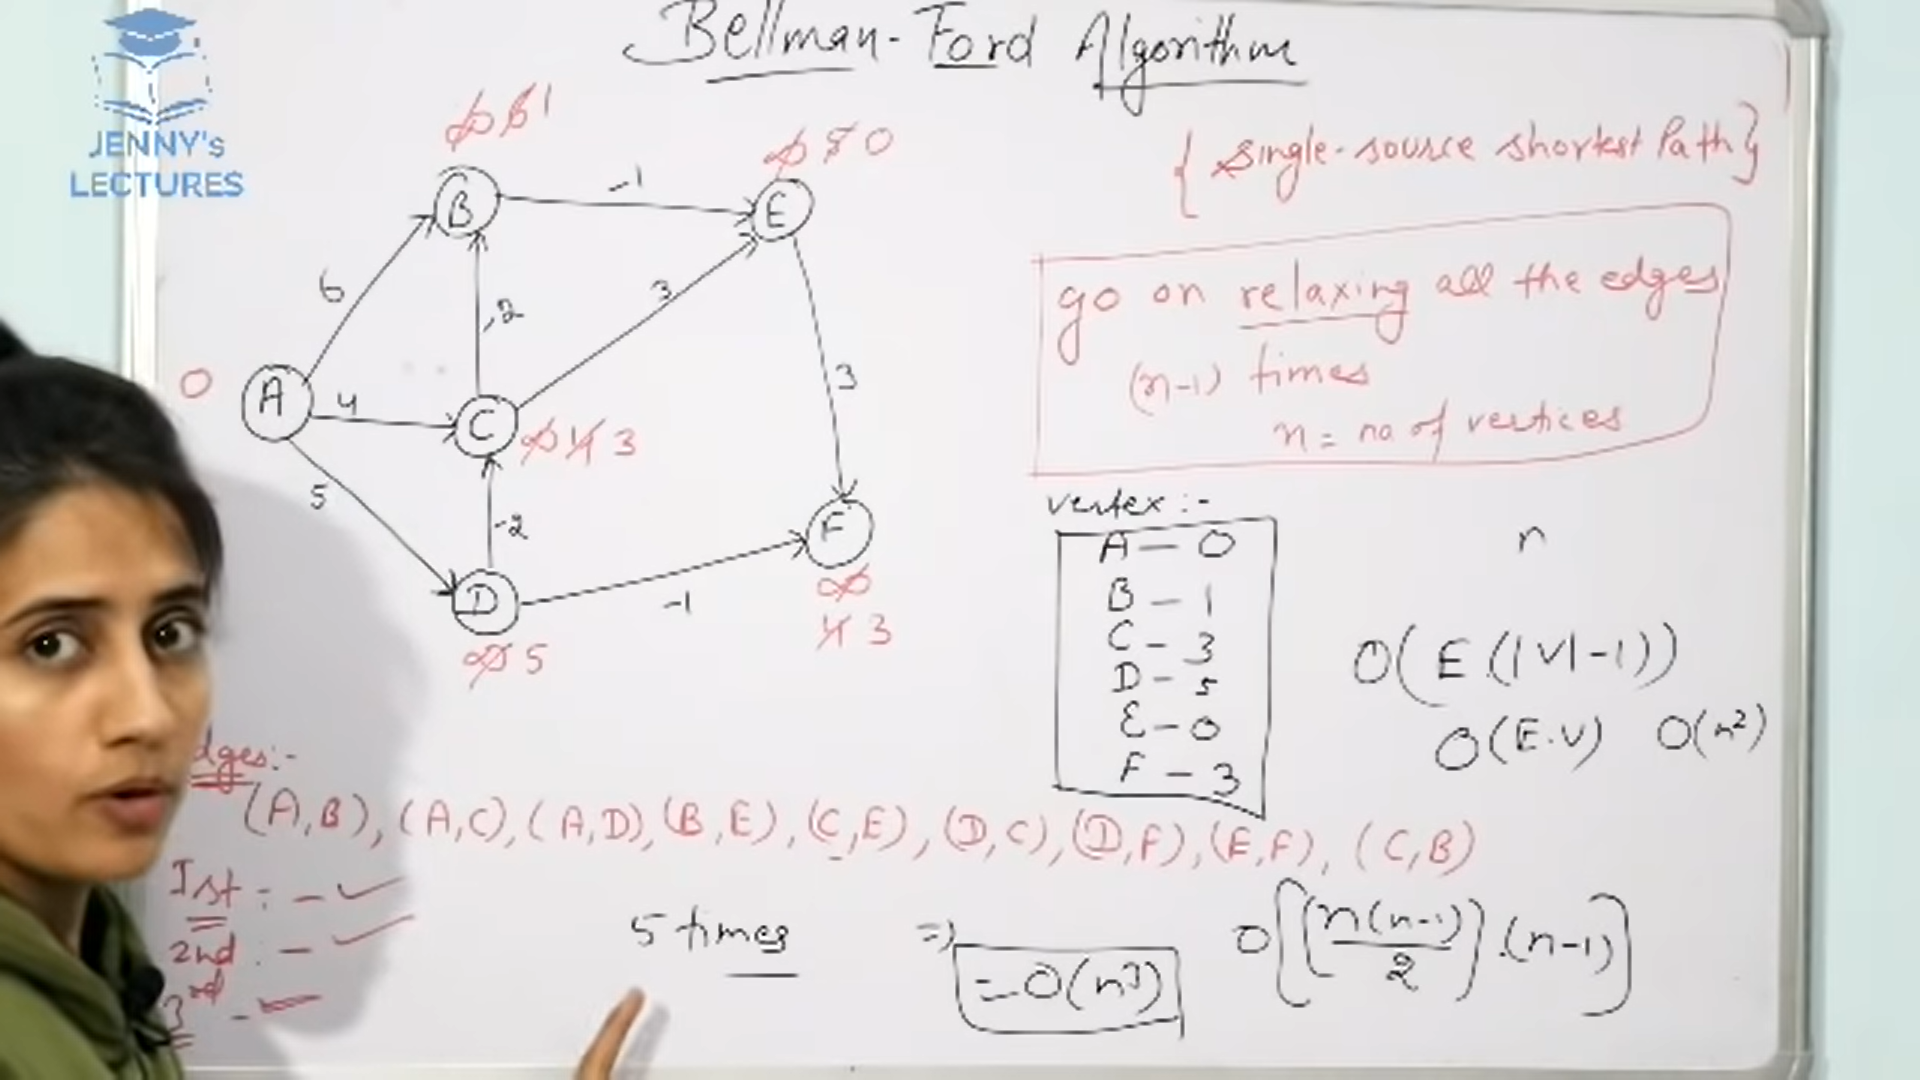 JENNY's
LECTURES
Bellman-Ford Algorithm
{ single-source shortest Path }
go on relaxing all the edges
(n-1) times
n = no of vertices
∞ 6 1
B
-1
∞ 5 0
E
6
-2
3
3
0
A
4
C
∞ 4 3
5
-2
D
∞ 5
-1
F
∞
4 3
vertex :-
A - 0
B - 1
C - 3
D - 5
E - 0
F - 3
n
O(E(|V|-1))
O(E.V) O(n²)
dges:-
(A,B), (A,C), (A,D), (B,E), (C,E), (D,C), (D,F), (E,F), (C,B)
Ist : - ✓
2nd : - ✓
3rd -
5 times
=> = O(n³)
O[(n(n-1)/2).(n-1)]